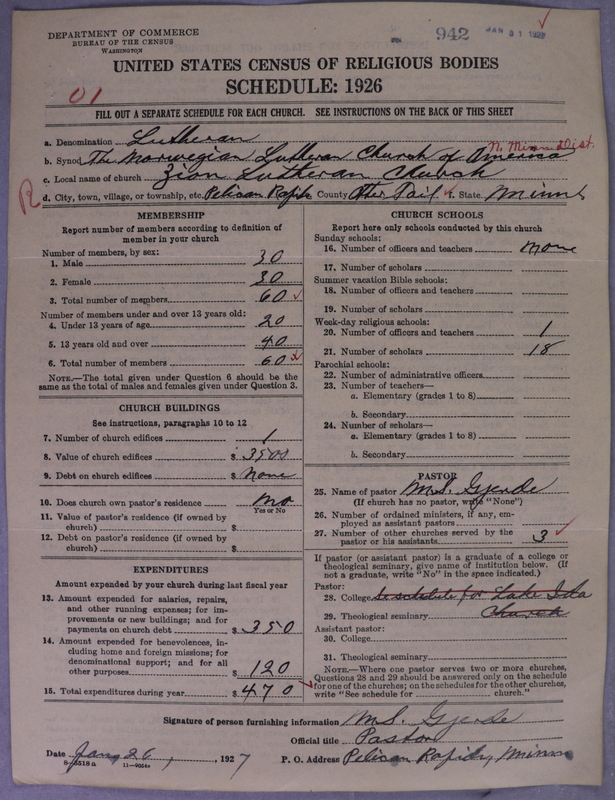 DEPARTMENT OF COMMERCE
BUREAU OF THE CENSUS
WASHINGTON
942
JAN 31 1927
UNITED STATES CENSUS OF RELIGIOUS BODIES
SCHEDULE: 1926
01
FILL OUT A SEPARATE SCHEDULE FOR EACH CHURCH. SEE INSTRUCTIONS ON THE BACK OF THIS SHEET
a. Denomination Lutheran
N. Minn Dist.
b. Synod The Norwegian Lutheran Church of America
c. Local name of church Zion Lutheran Church
R
d. City, town, village, or township, etc. Pelican Rapids County Otter Tail f. State Minn
MEMBERSHIP
Report number of members according to definition of
member in your church
Number of members, by sex:
1. Male 30
2. Female 30
3. Total number of members 60
Number of members under and over 13 years old:
4. Under 13 years of age 20
5. 13 years old and over 40
6. Total number of members 60
NOTE.—The total given under Question 6 should be the
same as the total of males and females given under Question 3.
CHURCH BUILDINGS
See instructions, paragraphs 10 to 12
7. Number of church edifices 1
8. Value of church edifices $ 3500
9. Debt on church edifices $ None
10. Does church own pastor's residence No
Yes or No
11. Value of pastor's residence (if owned by
church) $
12. Debt on pastor's residence (if owned by
church) $
EXPENDITURES
Amount expended by your church during last fiscal year
13. Amount expended for salaries, repairs,
and other running expenses; for im-
provements or new buildings; and for
payments on church debt $ 350
14. Amount expended for benevolences, in-
cluding home and foreign missions; for
denominational support; and for all
other purposes $ 120
15. Total expenditures during year $ 470
CHURCH SCHOOLS
Report here only schools conducted by this church
Sunday schools:
16. Number of officers and teachers None
17. Number of scholars
Summer vacation Bible schools:
18. Number of officers and teachers
19. Number of scholars
Week-day religious schools:
20. Number of officers and teachers 1
21. Number of scholars 18
Parochial schools:
22. Number of administrative officers
23. Number of teachers—
a. Elementary (grades 1 to 8)
b. Secondary
24. Number of scholars—
a. Elementary (grades 1 to 8)
b. Secondary
PASTOR
25. Name of pastor M.S. Gjerde
(If church has no pastor, write "None")
26. Number of ordained ministers, if any, em-
ployed as assistant pastors
27. Number of other churches served by the
pastor or his assistants 3
If pastor (or assistant pastor) is a graduate of a college or
theological seminary, give name of institution below. (If
not a graduate, write "No" in the space indicated.)
Pastor:
28. College schedule for Lake Ida
29. Theological seminary Church
Assistant pastor:
30. College
31. Theological seminary
NOTE.—Where one pastor serves two or more churches,
Questions 28 and 29 should be answered only on the schedule
for one of the churches; on the schedules for the other churches,
write "See schedule for church."
Signature of person furnishing information M.S. Gjerde
Official title Pastor
Date Jan, 26, 1927 P. O. Address Pelican Rapids, Minn